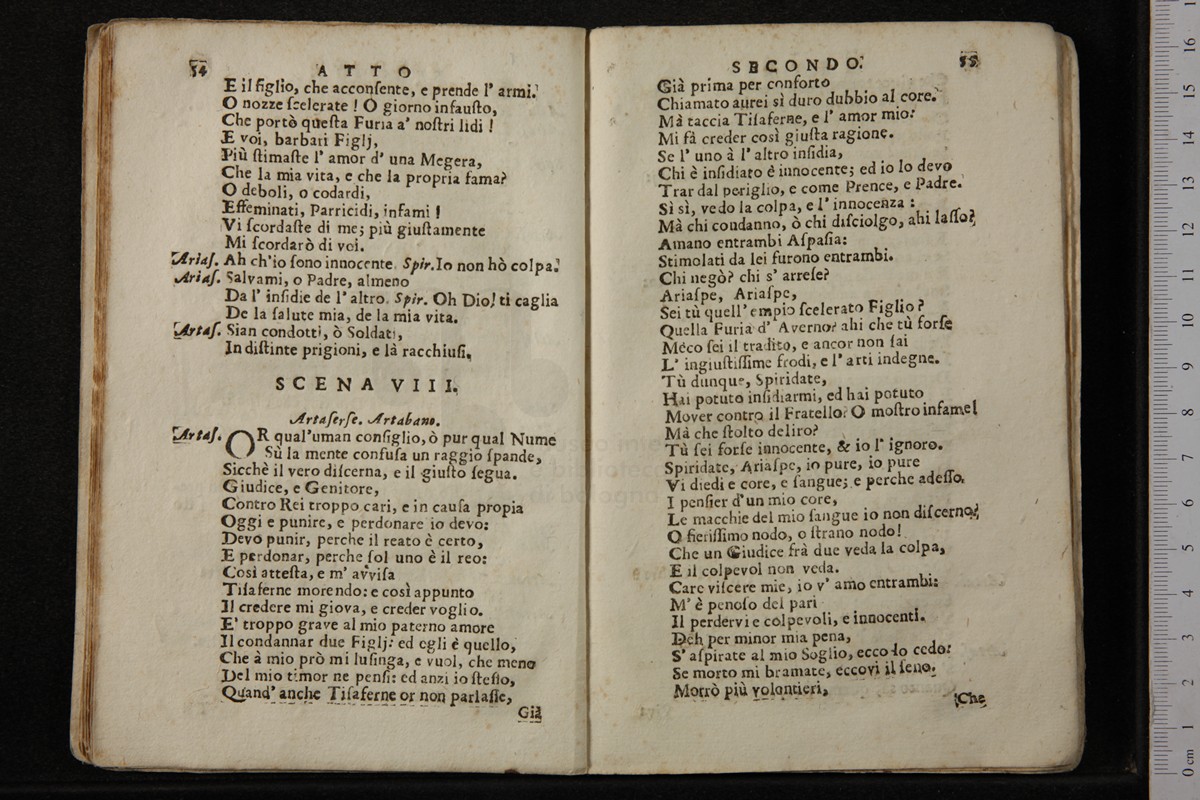 54
ATTO
E il figlio, che acconſente, e prende l' armi.
O nozze ſcelerate ! O giorno infauſto,
Che portò queſta Furia a' noſtri lidi !
E voi, barbari Figlj,
Più ſtimaſte l' amor d' una Megera,
Che la mia vita, e che la propria fama?
O deboli, o codardi,
Effeminati, Parricidi, infami !
Vi ſcordaſte di me; più giuſtamente
Mi ſcordarò di voi.
Ariaſ. Ah ch'io ſono innocente. Spir. Io non hò colpa.
Ariaſ. Salvami, o Padre, almeno
Da l' inſidie de l' altro. Spir. Oh Dio! ti caglia
De la ſalute mia, de la mia vita.
Artaſ. Sian condotti, ò Soldati,
In diſtinte prigioni, e là racchiuſi.
SCENA VIII.
Artaſerſe. Artabano.
Artaſ. OR qual'uman conſiglio, ò pur qual Nume
Sù la mente confuſa un raggio ſpande,
Sicchè il vero diſcerna, e il giuſto ſegua.
Giudice, e Genitore,
Contro Rei troppo cari, e in cauſa propia
Oggi e punire, e perdonare io devo:
Devo punir, perche il reato è certo,
E perdonar, perche ſol uno è il reo:
Così atteſta, e m' avviſa
Tiſaferne morendo: e così appunto
Il credere mi giova, e creder voglio.
E' troppo grave al mio paterno amore
Il condannar due Figlj: ed egli è quello,
Che à mio prò mi luſinga, e vuol, che meno
Del mio timor ne penſi: ed anzi io ſteſſo,
Quand' anche Tiſaferne or non parlaſſe,
Già
SECONDO.
55
Già prima per conforto
Chiamato aurei sì duro dubbio al core.
Mà taccia Tiſaferne, e l' amor mio:
Mi fà creder così giuſta ragione.
Se l' uno à l' altro inſidia,
Chi è inſidiato è innocente; ed io lo devo
Trar dal periglio, e come Prence, e Padre.
Sì sì, vedo la colpa, e l' innocenza :
Mà chi condanno, ò chi diſciolgo, ahi laſſo?
Amano entrambi Aſpaſia:
Stimolati da lei furono entrambi.
Chi negò? chi s' arreſe?
Ariaſpe, Ariaſpe,
Sei tù quell' empio ſcelerato Figlio?
Quella Furia d' Averno? ahi che tù forſe
Méco ſei il tradito, e ancor non ſai
L' ingiuſtiſſime frodi, e l' arti indegne.
Tù dunque, Spiridate,
Hai potuto inſidiarmi, ed hai potuto
Mover contro il Fratello? O moſtro infame!
Mà che ſtolto deliro?
Tù ſei forſe innocente, & io l' ignoro.
Spiridate, Ariaſpe, io pure, io pure
Vi diedi e core, e ſangue; e perche adeſſo
I penſier d'un mio core,
Le macchie del mio ſangue io non diſcerno?
O fieriſſimo nodo, o ſtrano nodo!
Che un Giudice frà due veda la colpa,
E il colpevol non veda.
Care viſcere mie, io v' amo entrambi:
M' è penoſo del pari
Il perdervi e colpevoli, e innocenti.
Deh per minor mia pena,
S' aſpirate al mio Soglio, ecco lo cedo:
Se morto mi bramate, eccovi il ſeno.
Morrò più volontieri,
Che